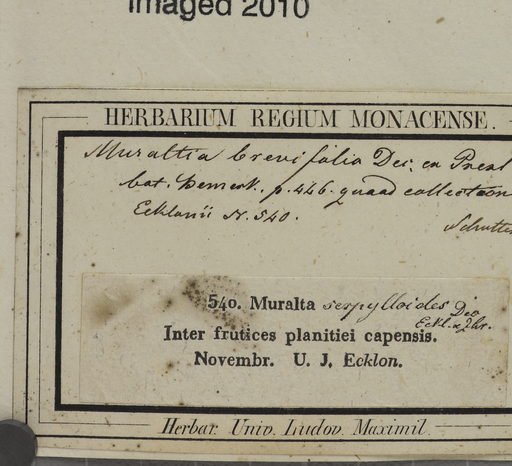 Imaged 2010
HERBARIUM REGIUM MONACENSE.
Muraltia brevifolia Dec. ex Presl
bot. Bemerk. p. 446. quoad collection
Ecklonii N. 540.
540. Muralta serpylloides Dec
Eckl. & Zhr.
Inter frutices planitiei capensis.
Novembr. U. J. Ecklon.
Herbar. Univ. Ludov. Maximil.